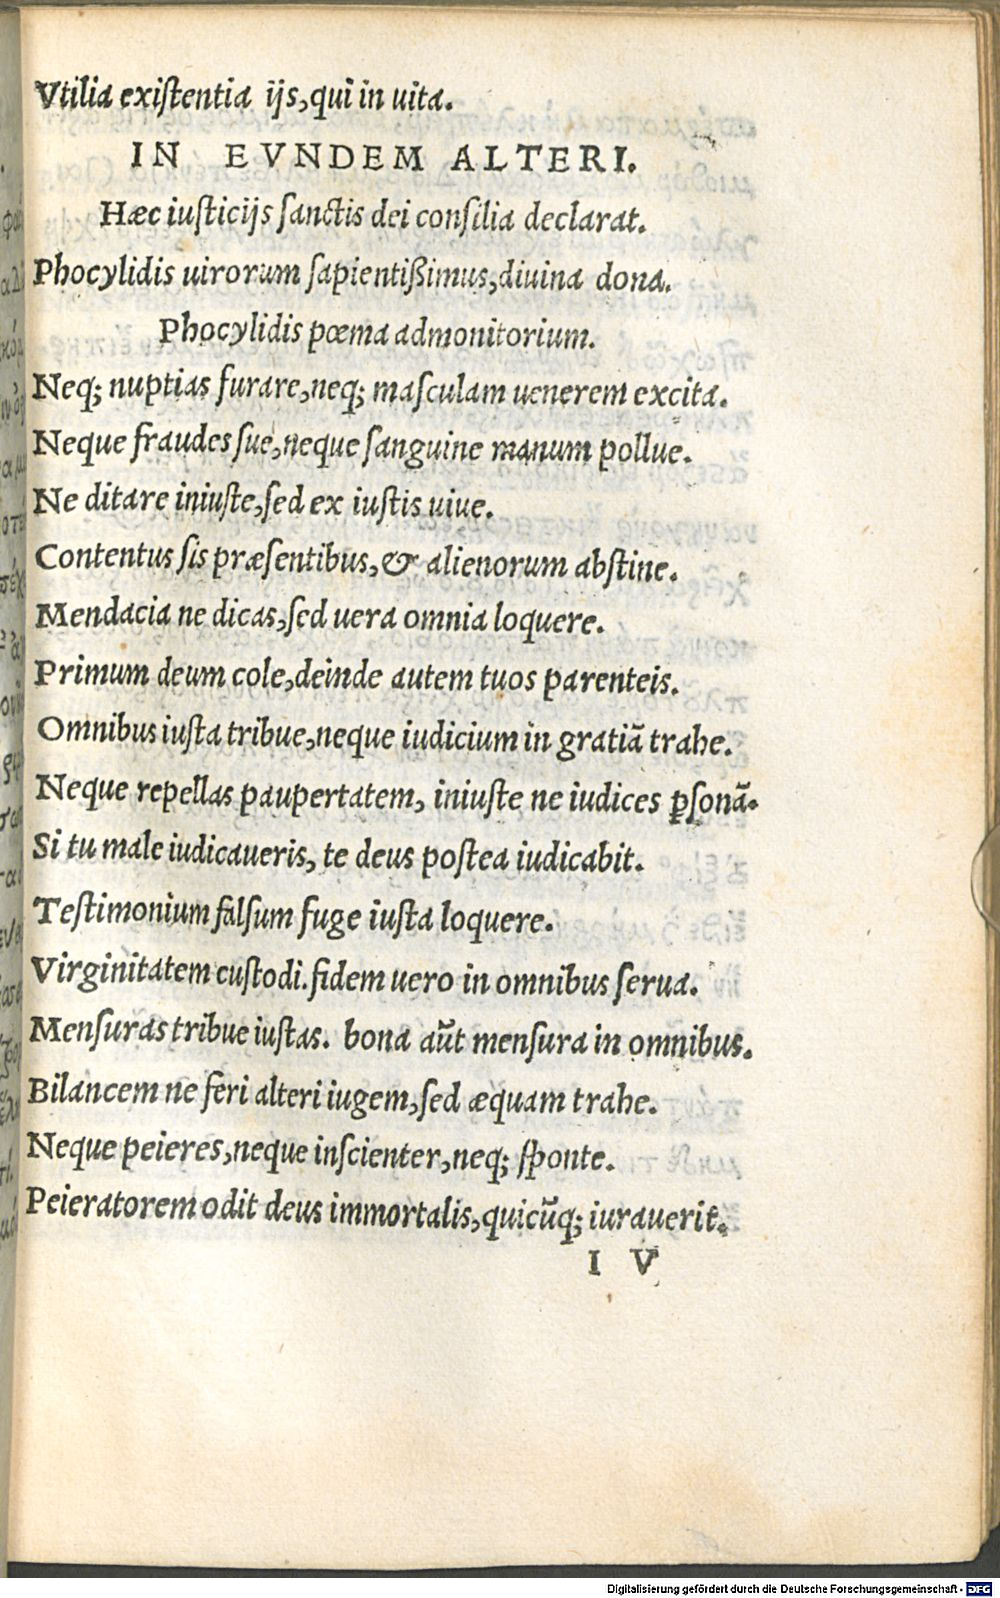 Vtilia exiſtentia ijs, qui in uita.
IN EVNDEM ALTERI.
Hæc iuſticijs ſanctis dei conſilia declarat.
Phocylidis uirorum ſapientißimus, diuina dona.
Phocylidis poema admonitorium.
Neq; nuptias furare, neq; maſculam uenerem excita.
Neque fraudes ſue, neque ſanguine manum pollue.
Ne ditare iniuſte, ſed ex iuſtis uiue.
Contentus ſis præſentibus, & alienorum abſtine.
Mendacia ne dicas, ſed uera omnia loquere.
Primum deum cole, deinde autem tuos parenteis.
Omnibus iuſta tribue, neque iudicium in gratiā trahe.
Neque repellas paupertatem, iniuſte ne iudices ꝑſonā.
Si tu male iudicaueris, te deus poſtea iudicabit.
Teſtimonium falſum fuge iuſta loquere.
Virginitatem cuſtodi. fidem uero in omnibus ſerua.
Menſuras tribue iuſtas. bona aūt menſura in omnibus.
Bilancem ne feri alteri iugem, ſed æquam trahe.
Neque peieres, neque inſcienter, neq; ſponte.
Peieratorem odit deus immortalis, quicūq; iurauerit.
I V
Digitalisierung gefördert durch die Deutsche Forschungsgemeinschaft - DFG